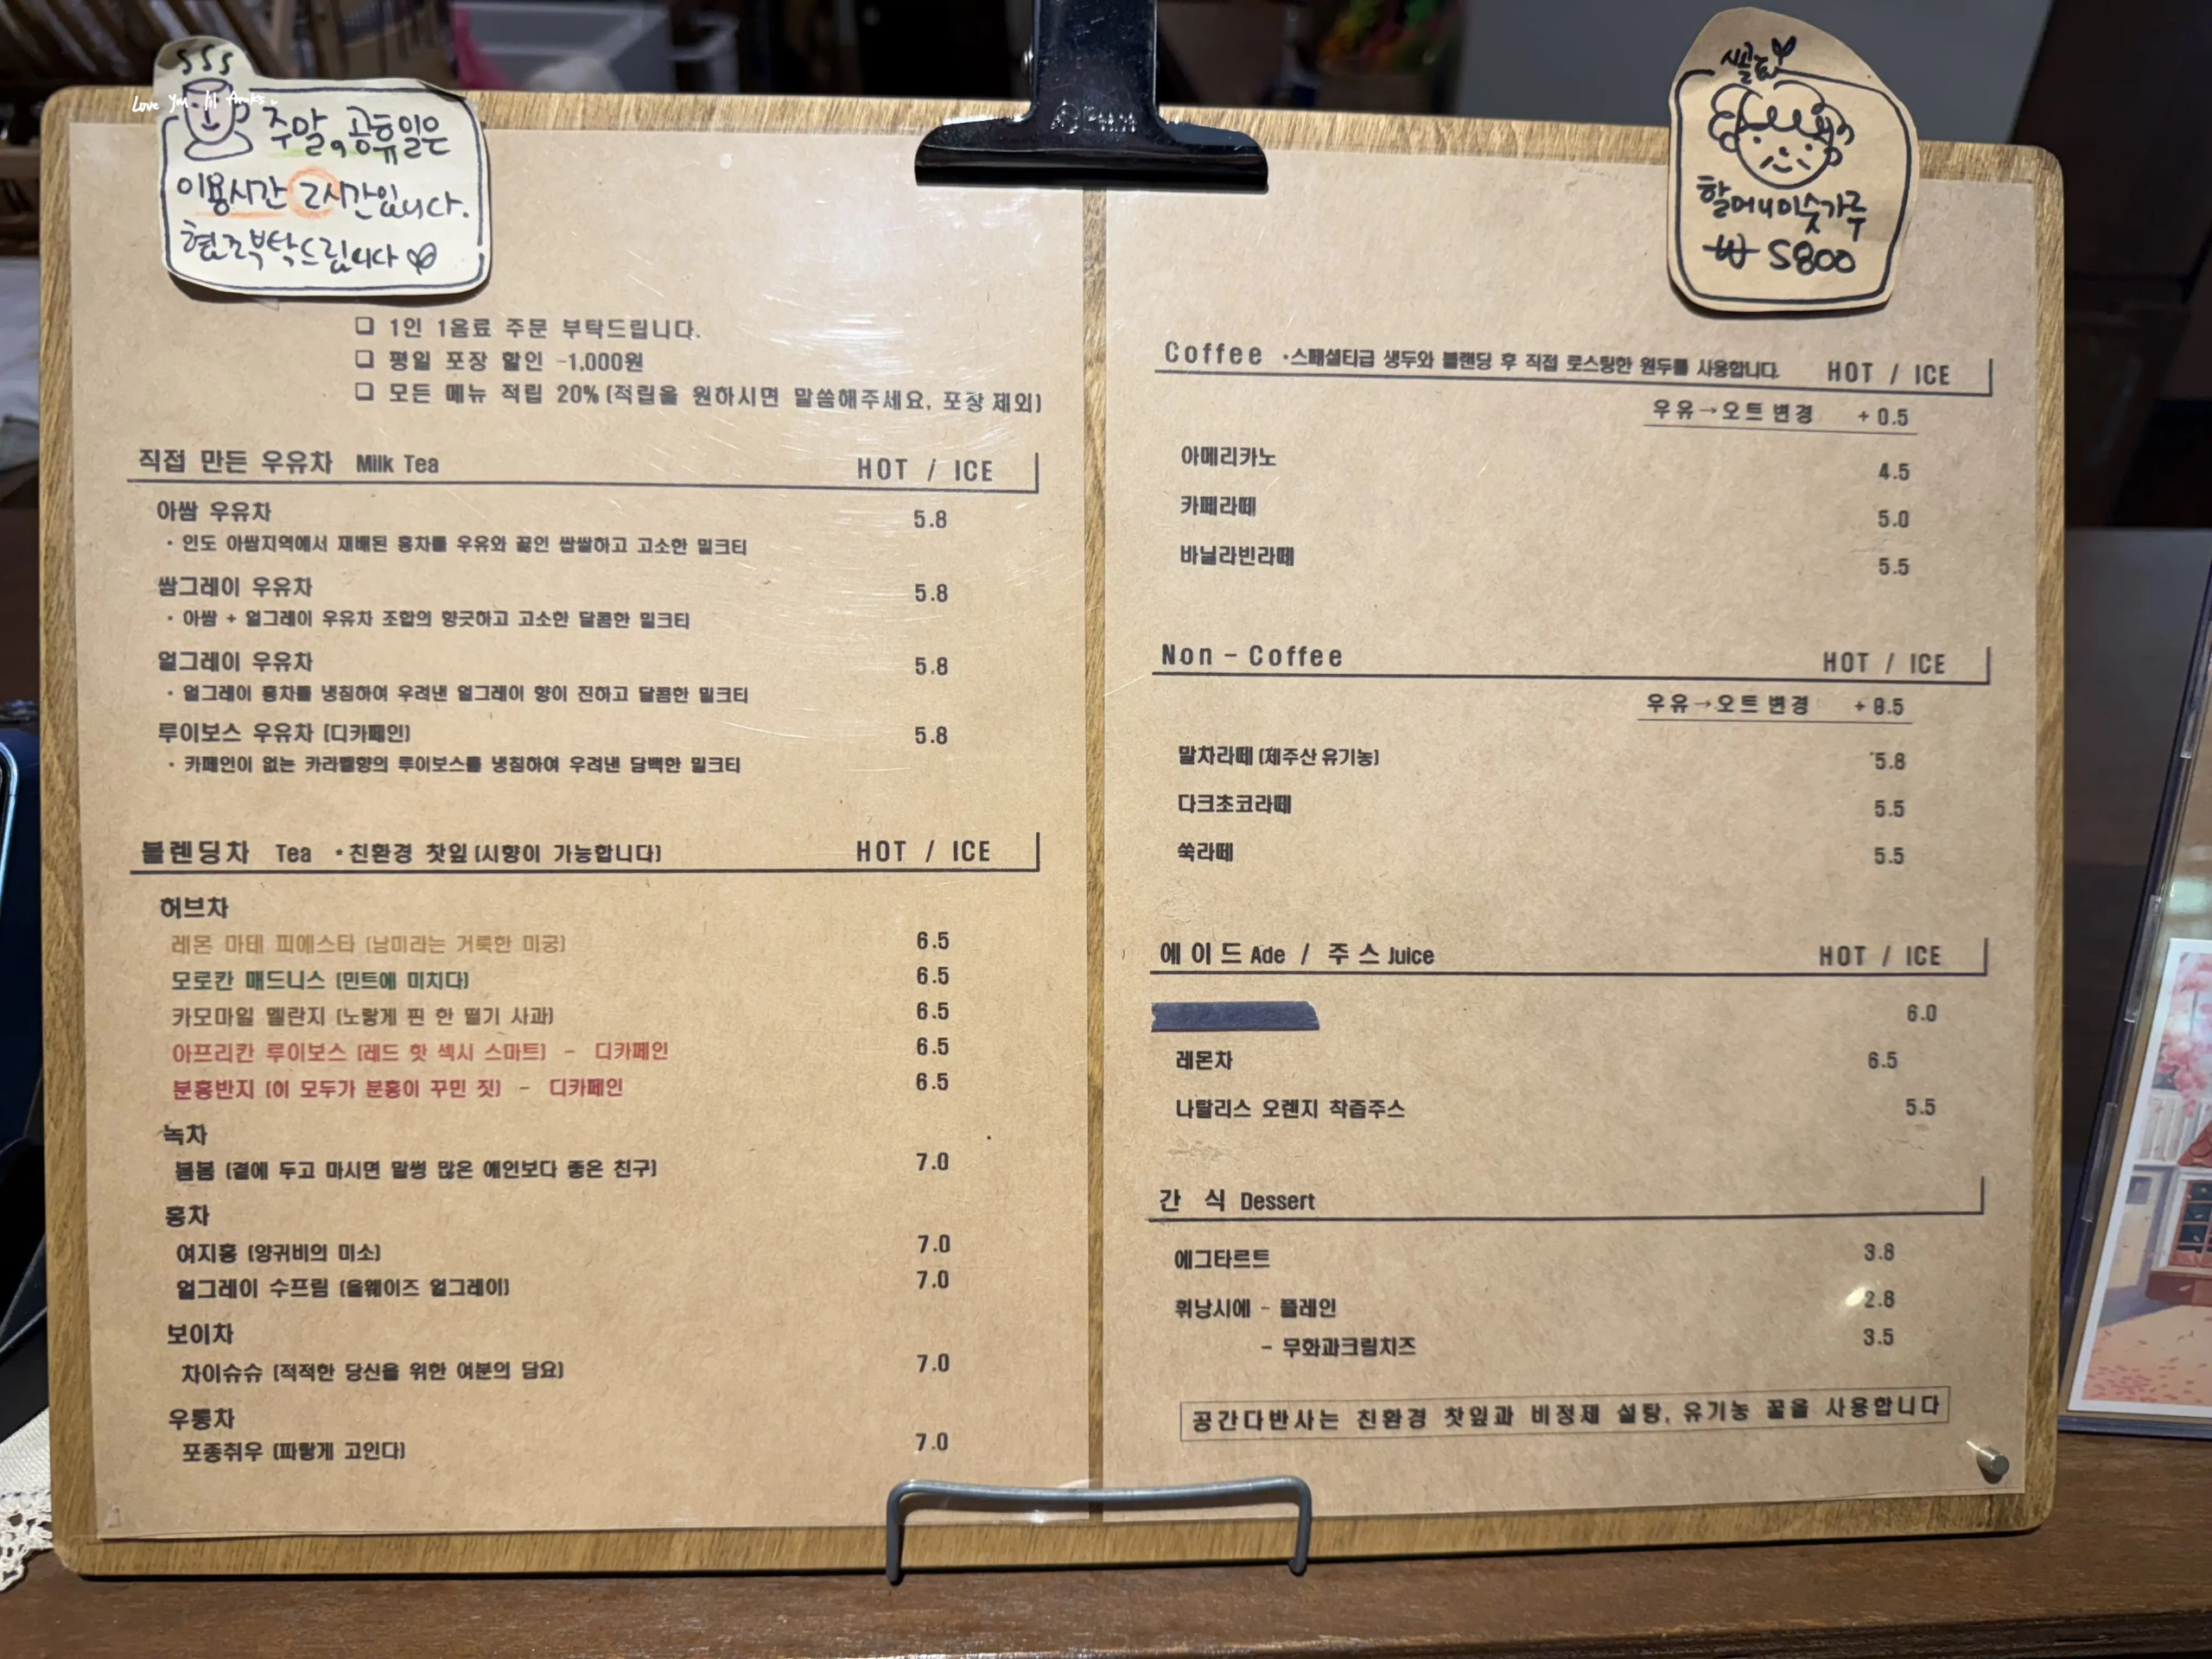 Love you lil freaks
주말, 공휴일은
이용시간 2시간입니다.
협조부탁드립니다
시골
할머니미숫가루
₩ 5800
❑ 1인 1음료 주문 부탁드립니다.
❑ 평일 포장 할인 -1,000원
❑ 모든 메뉴 적립 20% (적립을 원하시면 말씀해주세요, 포장 제외)
직접 만든 우유차 Milk Tea HOT / ICE
아쌈 우유차 5.8
• 인도 아쌈지역에서 재배된 홍차를 우유와 끓인 쌉쌀하고 고소한 밀크티
쌈그레이 우유차 5.8
• 아쌈 + 얼그레이 우유차 조합의 향긋하고 고소한 달콤한 밀크티
얼그레이 우유차 5.8
• 얼그레이 홍차를 냉침하여 우려낸 얼그레이 향이 진하고 달콤한 밀크티
루이보스 우유차 (디카페인) 5.8
• 카페인이 없는 카라멜향의 루이보스를 냉침하여 우려낸 담백한 밀크티
블렌딩차 Tea •친환경 찻잎 (시향이 가능합니다) HOT / ICE
허브차
레몬 마테 피에스타 (남미라는 거룩한 미궁) 6.5
모로칸 매드니스 (민트에 미치다) 6.5
카모마일 멜란지 (노랗게 핀 한 떨기 사과) 6.5
아프리칸 루이보스 (레드 핫 섹시 스마트) - 디카페인 6.5
분홍반지 (이 모두가 분홍이 꾸민 짓) - 디카페인 6.5
녹차
봄봄 (곁에 두고 마시면 말썽 많은 애인보다 좋은 친구) 7.0
홍차
여지홍 (양귀비의 미소) 7.0
얼그레이 수프림 (올웨이즈 얼그레이) 7.0
보이차
차이슈슈 (적적한 당신을 위한 여분의 담요) 7.0
우롱차
포종취우 (파랗게 고인다) 7.0
Coffee •스페셜티급 생두와 블랜딩 후 직접 로스팅한 원두를 사용합니다. HOT / ICE
우유→오트 변경 + 0.5
아메리카노 4.5
카페라떼 5.0
바닐라빈라떼 5.5
Non - Coffee HOT / ICE
우유→오트 변경 + 0.5
말차라떼 (제주산 유기농) 5.8
다크초코라떼 5.5
쑥라떼 5.5
에이드 Ade / 주스 Juice HOT / ICE
6.0
레몬차 6.5
나탈리스 오렌지 착즙주스 5.5
간 식 Dessert
에그타르트 3.8
휘낭시에 - 플레인 2.8
- 무화과크림치즈 3.5
공간다반사는 친환경 찻잎과 비정제 설탕, 유기농 꿀을 사용합니다